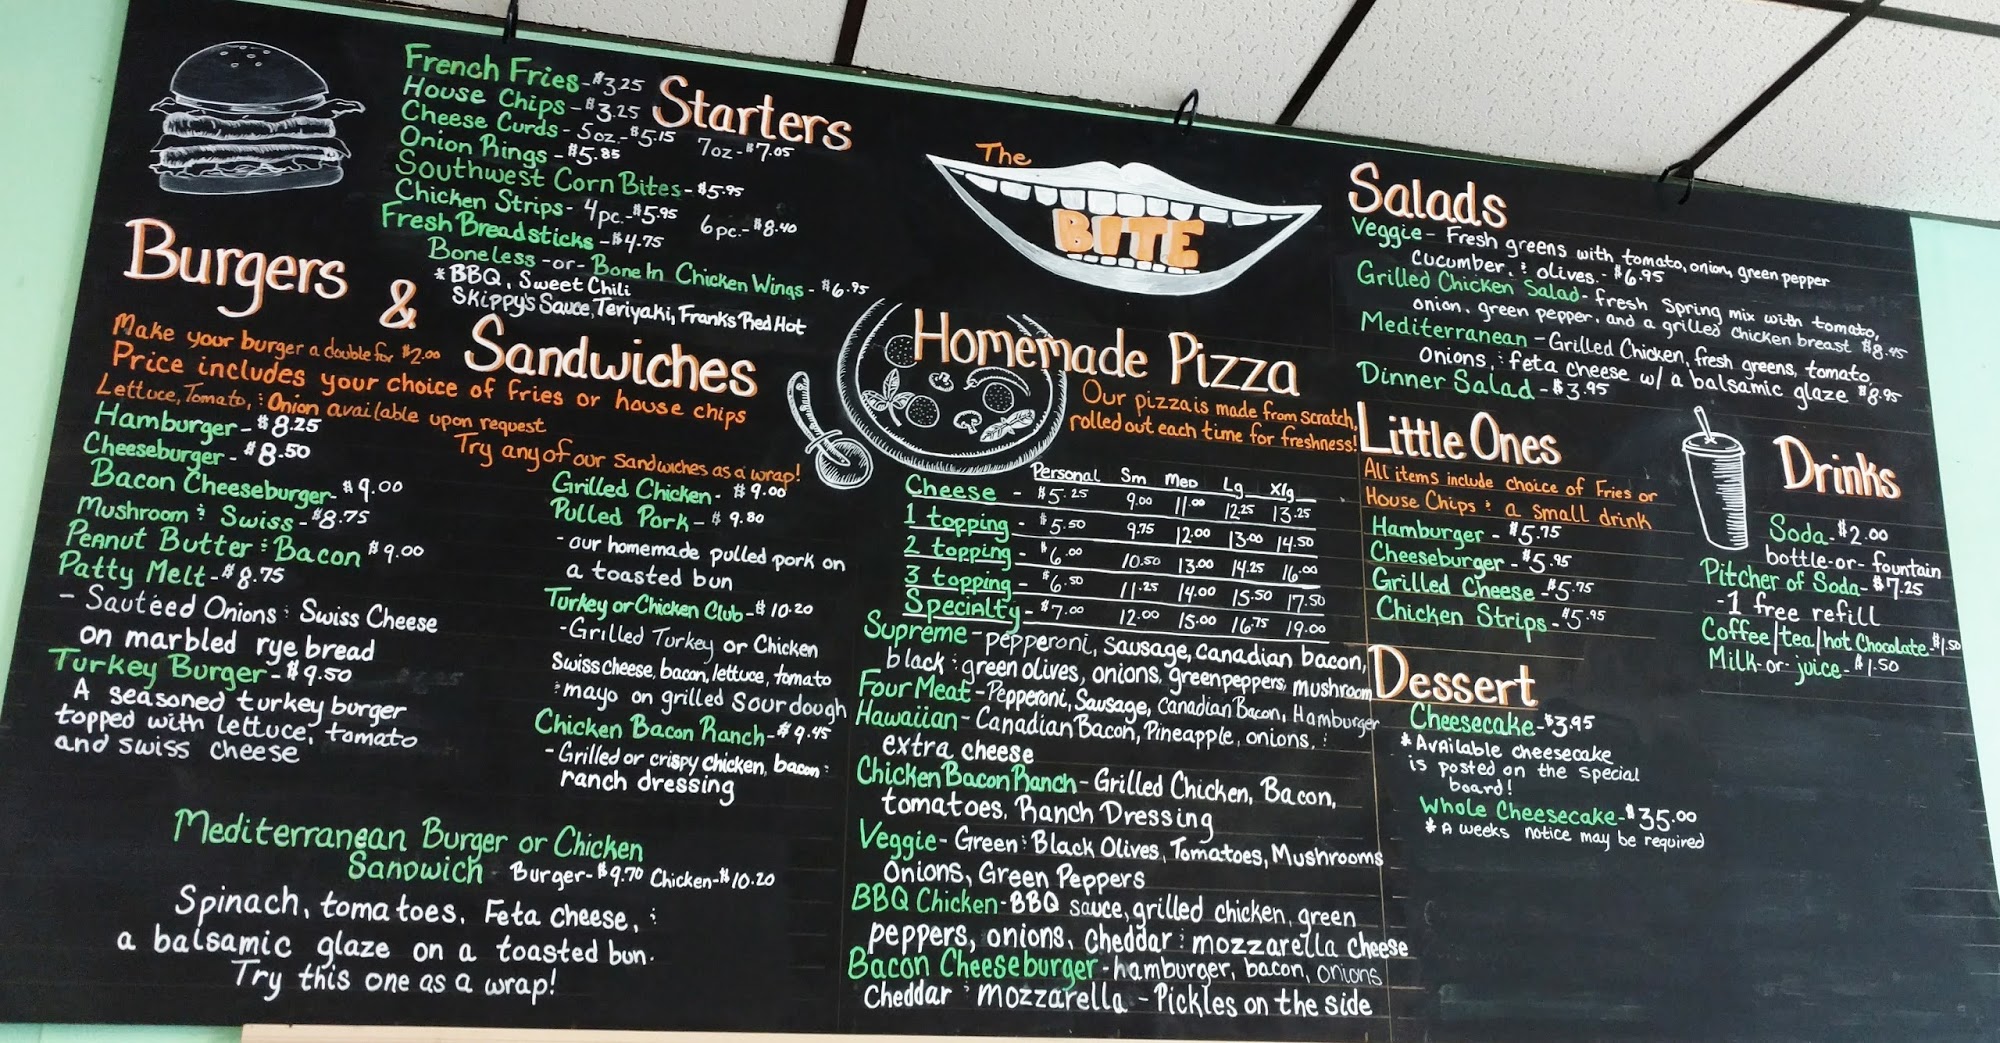 Starters
French Fries - $3.25
House Chips - $3.25
Cheese Curds - 5oz. - $5.15 7oz - $7.05
Onion Rings - $5.85
Southwest Corn Bites - $5.95
Chicken Strips - 4pc. - $5.95 6pc. - $8.40
Fresh Breadsticks - $4.75
Boneless -or- Bone In Chicken Wings - $6.95
* BBQ, Sweet Chili
Skippy's Sauce, Teriyaki, Franks Red Hot
Burgers
&
Sandwiches
Make your burger a double for $2.00
Price includes your choice of fries or house chips
Lettuce, Tomato, & Onion available upon request
Try any of our sandwiches as a wrap!
Hamburger - $8.25
Cheeseburger - $8.50
Bacon Cheeseburger - $9.00
Mushroom & Swiss - $8.75
Peanut Butter & Bacon $9.00
Patty Melt - $8.75
- Sautéed Onions & Swiss Cheese
on marbled rye bread
Turkey Burger - $9.50
A seasoned turkey burger
topped with lettuce, tomato
and swiss cheese
Grilled Chicken - $9.00
Pulled Pork - $9.80
- our homemade pulled pork on
a toasted bun
Turkey or Chicken Club - $10.20
- Grilled Turkey or Chicken
Swiss cheese, bacon, lettuce, tomato
& mayo on grilled Sourdough
Chicken Bacon Ranch - $9.45
- Grilled or crispy chicken, bacon &
ranch dressing
Mediterranean Burger or Chicken
Sandwich - Burger - $9.70 Chicken - $10.20
Spinach, tomatoes, Feta cheese, &
a balsamic glaze on a toasted bun.
Try this one as a wrap!
The
BITE
Homemade Pizza
Our pizza is made from scratch,
rolled out each time for freshness!
Personal Sm Med Lg Xlg
Cheese - $5.25 9.00 11.00 12.25 13.25
1 topping - $5.50 9.75 12.00 13.00 14.50
2 topping - $6.00 10.50 13.00 14.25 16.00
3 topping - $6.50 11.25 14.00 15.50 17.50
Specialty - $7.00 12.00 15.00 16.75 19.00
Supreme - pepperoni, sausage, canadian bacon,
black & green olives, onions, green peppers, mushroom
Four Meat - Pepperoni, Sausage, Canadian Bacon, Hamburger
Hawaiian - Canadian Bacon, Pineapple, onions, &
extra cheese
Chicken Bacon Ranch - Grilled Chicken, Bacon,
tomatoes, Ranch Dressing
Veggie - Green & Black Olives, Tomatoes, Mushrooms
Onions, Green Peppers
BBQ Chicken - BBQ sauce, grilled chicken, green
peppers, onions, cheddar & mozzarella cheese
Bacon Cheeseburger - hamburger, bacon, onions
Cheddar & Mozzarella - Pickles on the side
Salads
Veggie - Fresh greens with tomato, onion, green pepper
cucumber, & olives. - $6.95
Grilled Chicken Salad - fresh Spring mix with tomato,
onion, green pepper, and a grilled chicken breast $8.45
Mediterranean - Grilled Chicken, fresh greens, tomato,
onions, & feta cheese w/ a balsamic glaze $8.95
Dinner Salad - $3.95
Little Ones
All items include choice of Fries or
House Chips & a small drink
Hamburger - $5.75
Cheeseburger - $5.95
Grilled Cheese - $5.75
Chicken Strips - $5.95
Dessert
Cheesecake - $3.95
* Available cheesecake
is posted on the special
board!
Whole Cheesecake - $35.00
* A weeks notice may be required
Drinks
Soda - $2.00
bottle -or- fountain
Pitcher of Soda - $7.25
- 1 free refill
Coffee/tea/hot Chocolate - $1.50
Milk -or- juice - $1.50